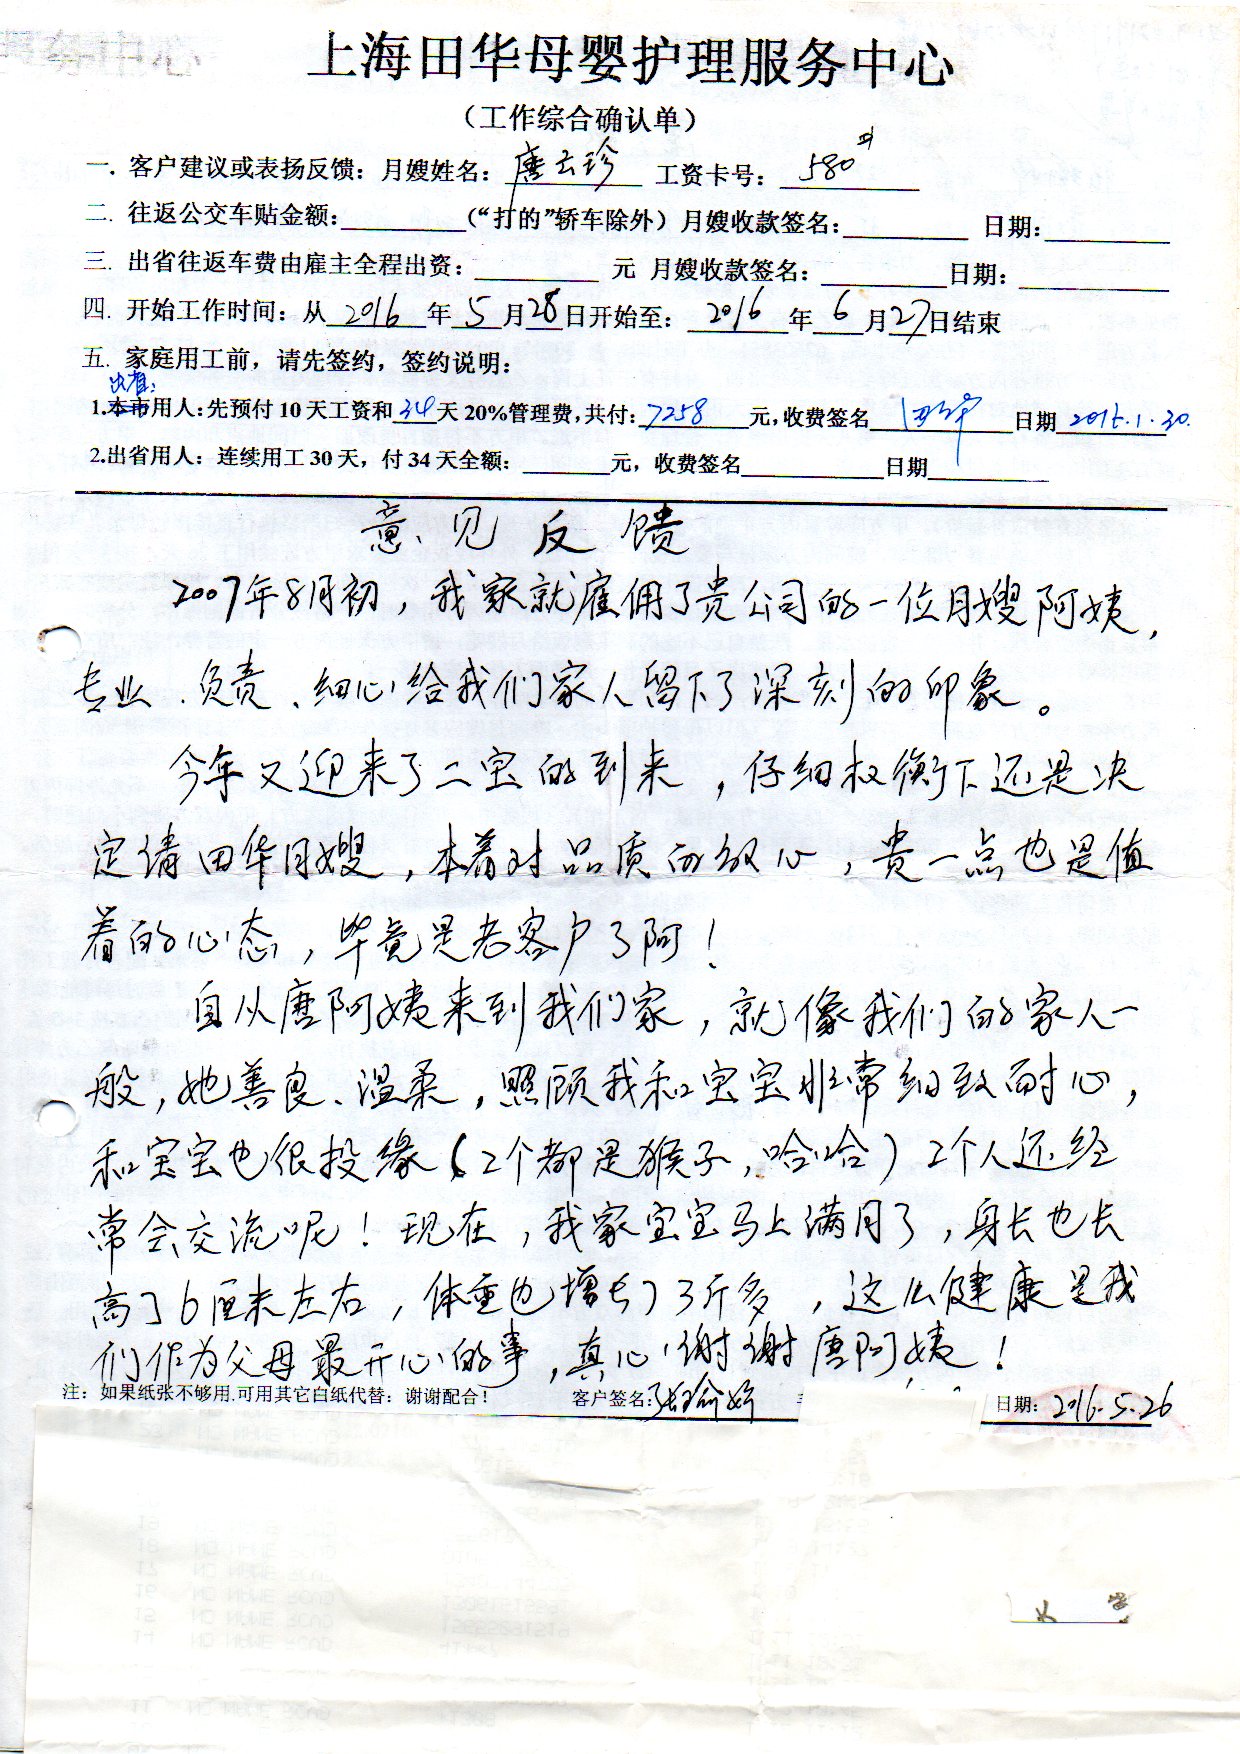 上海田华母婴护理服务中心
（工作综合确认单）
一. 客户建议或表扬反馈：月嫂姓名：唐云珍 工资卡号：580
二. 往返公交车贴金额： （“打的”轿车除外）月嫂收款签名： 日期：
三. 出省往返车费由雇主全程出资： 元 月嫂收款签名： 日期：
四. 开始工作时间：从2016年5月28日开始至：2016年6月27日结束
五. 家庭用工前，请先签约，签约说明：
1.本市用人：先预付10天工资和34天20%管理费，共付：7258元，收费签名 日期 2016.1.30.
2.出省用人：连续用工30天，付34天全额： 元，收费签名 日期
意见反馈
2007年8月初，我家就雇佣了贵公司的一位月嫂阿姨，
专业、负责、细心给我们家人留下了深刻的印象。
今年又迎来了二宝的到来，仔细权衡下还是决
定请田华月嫂，本着对品质的放心，贵一点也是值
着的心态，毕竟是老客户了阿！
自从唐阿姨来到我们家，就像我们的家人一
般，她善良、温柔，照顾我和宝宝非常细致耐心，
和宝宝也很投缘（2个都是猴子，哈哈）2个人还经
常会交流呢！现在，我家宝宝马上满月了，身长也长
高了6厘米左右，体重也增长了3斤多，这么健康是我
们作为父母最开心的事，真心谢谢唐阿姨！
注：如果纸张不够用.可用其它白纸代替：谢谢配合！ 客户签名： 日期：2016.5.26